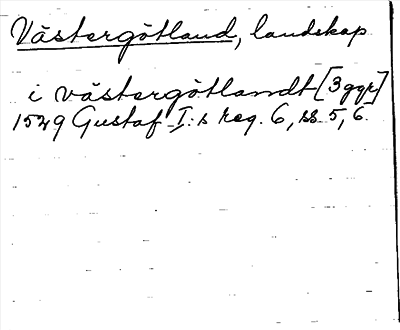 Västergötland, landskap
i västergötlandt [3 ggr]
1529 Gustaf I:s reg. 6, ss. 5, 6.